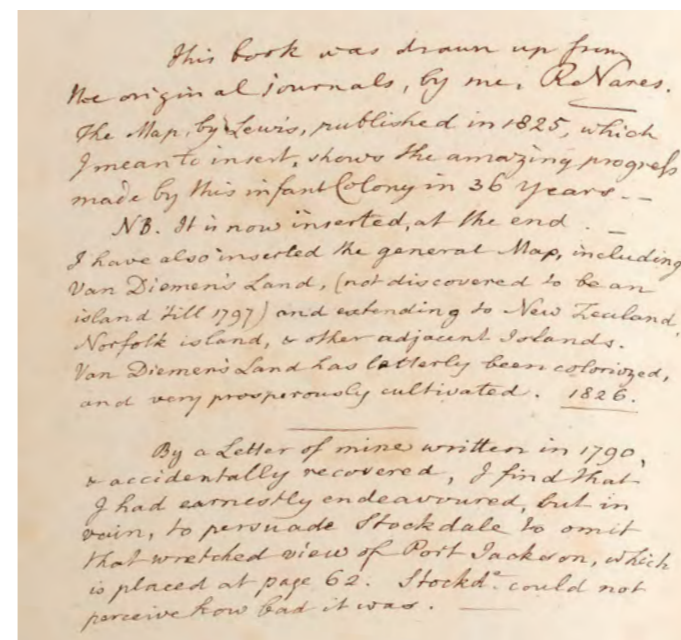 This book was drawn up from
the original journals, by me, R. Nares.
The Map, by Lewis, published in 1825, which
I mean to insert, shows the amazing progress
made by this infant Colony in 36 years. —
NB. It is now inserted, at the end. —
I have also inserted the general Map, including
Van Diemen's Land, (not discovered to be an
island till 1797) and extending to New Zealand,
Norfolk island, & other adjacent Islands.
Van Diemen's Land has latterly been colonized,
and very prosperously cultivated. 1826.
By a Letter of mine written in 1790,
& accidentally recovered, I find that
I had earnestly endeavoured, but in
vain, to persuade Stockdale to omit
that wretched view of Port Jackson, which
is placed at page 62. Stockd.e could not
perceive how bad it was. —